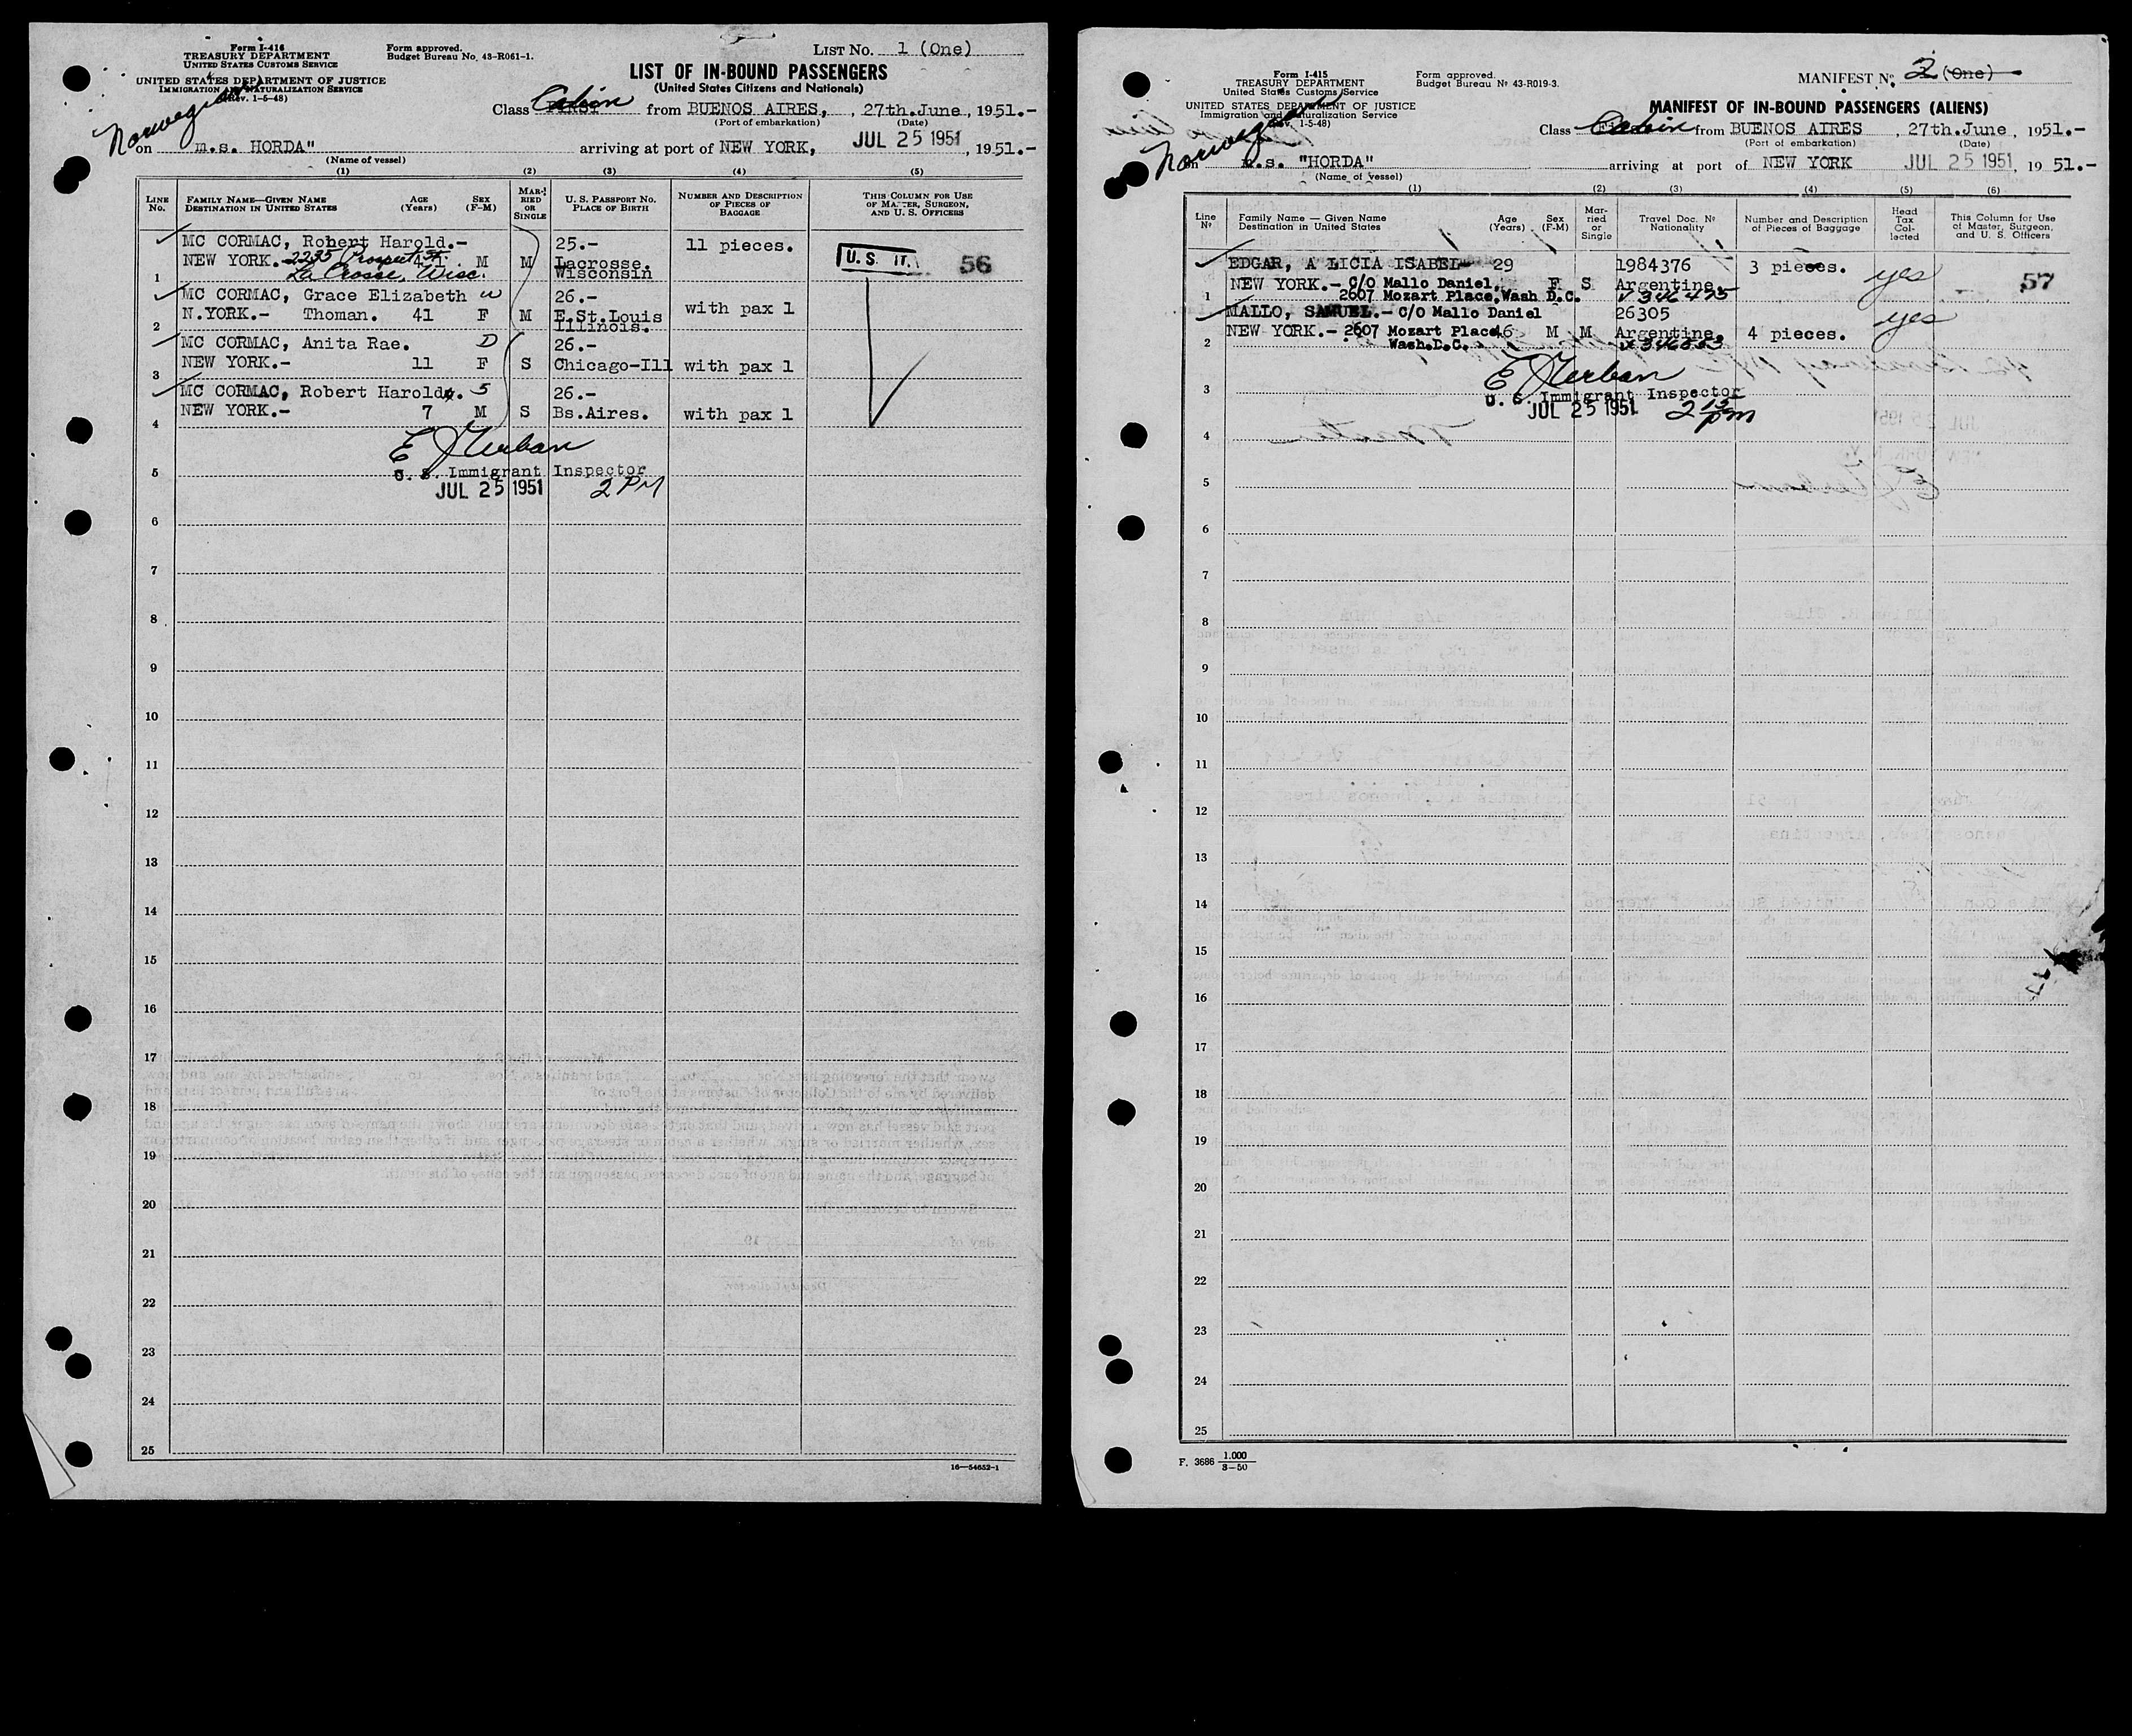 Form I-416
TREASURY DEPARTMENT
UNITED STATES CUSTOMS SERVICE
UNITED STATES DEPARTMENT OF JUSTICE
IMMIGRATION AND NATURALIZATION SERVICE
(Rev. 1-5-48)
Form approved.
Budget Bureau No. 43-R061-1.
LIST NO. 1 (One)
LIST OF IN-BOUND PASSENGERS
(United States Citizens and Nationals)
Class Cabin from BUENOS AIRES, , 27th.June, 1951.-
(Port of embarkation) (Date)
Norwegian
on m.s. HORDA" arriving at port of NEW YORK, JUL 25 1951, 1951.-
(Name of vessel)
(1) (2) (3) (4) (5)
LINE No. FAMILY NAME—GIVEN NAME DESTINATION IN UNITED STATES AGE (Years) SEX (F-M) MARRIED OR SINGLE U. S. PASSPORT NO. PLACE OF BIRTH NUMBER AND DESCRIPTION OF PIECES OF BAGGAGE THIS COLUMN FOR USE OF MASTER, SURGEON, AND U. S. OFFICERS
MC CORMAC, Robert Harold.- 25.- 11 pieces. 56
NEW YORK.- 2235 Prospect St. M M Lacrosse.
1 La Crosse, Wisc. Wisconsin
MC CORMAC, Grace Elizabeth W 26.- with pax 1
N.YORK.- Thoman. 41 F M E.St.Louis
2 Illinois.
MC CORMAC, Anita Rae. D 26.-
NEW YORK.- 11 F S Chicago-Ill with pax 1
3
MC CORMAC, Robert Harold. S 26.-
NEW YORK.- 7 M S Bs.Aires. with pax 1
4
5 U. S. Immigrant Inspector
JUL 25 1951 2 PM
6
7
8
9
10
11
12
13
14
15
16
17
18
19
20
21
22
23
24
25
16—54652-1
Form I-415
TREASURY DEPARTMENT
United States Customs Service
UNITED STATES DEPARTMENT OF JUSTICE
Immigration and Naturalization Service
(Rev. 1-5-48)
Form approved.
Budget Bureau Nº 43-R019-3.
MANIFEST Nº 2 (One)
MANIFEST OF IN-BOUND PASSENGERS (ALIENS)
Class Cabin from BUENOS AIRES , 27th.June , 1951.-
(Port of embarkation) (Date)
Norwegian
on m.s. "HORDA" arriving at port of NEW YORK JUL 25 1951, 19 51.-
(Name of vessel)
(1) (2) (3) (4) (5) (6)
Line Nº Family Name — Given Name Destination in United States Age (Years) Sex (F-M) Married or Single Travel Doc. Nº Nationality Number and Description of Pieces of Baggage Head Tax Collected This Column for Use of Master, Surgeon, and U. S. Officers
EDGAR, A LICIA ISABEL- 29 1984376 3 pieces. yes 57
NEW YORK.- C/O Mallo Daniel, F S Argentine.
1 2607 Mozart Place,Wash D.C. V 346475
MALLO, SAMUEL.- C/O Mallo Daniel 26305 yes
NEW YORK.- 2607 Mozart Place 46 M M Argentine. 4 pieces.
2 Wash.D.C.
3 U. S. Immigrant Inspector
JUL 25 1951 2 15 PM
4
5
6
7
8
9
10
11
12
13
14
15
16
17
18
19
20
21
22
23
24
25
F. 3686 1.000
8-50